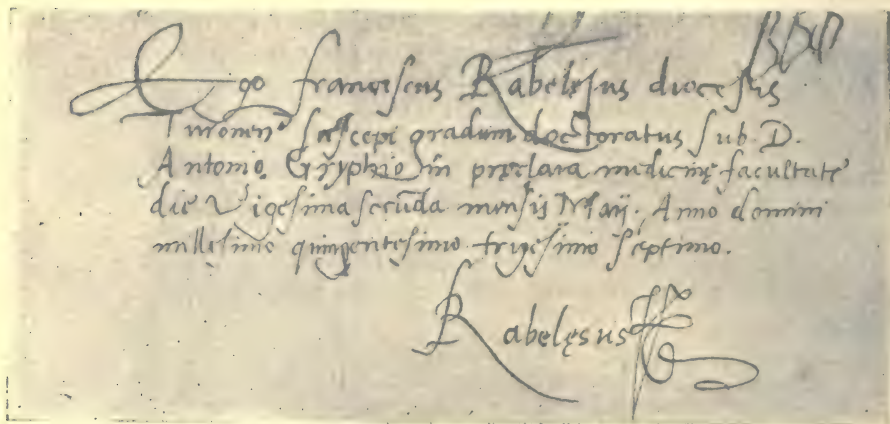 Ego franciscus Rabelęsus diocesis
Turonen. suscepi gradum doctoratus sub D.
Antonio Gryphio in pręclara medicinę facultate
die vigesima secūda mensis Maij. Anno domini
millesimo quingentesimo trigesimo septimo.
Rabelęsus